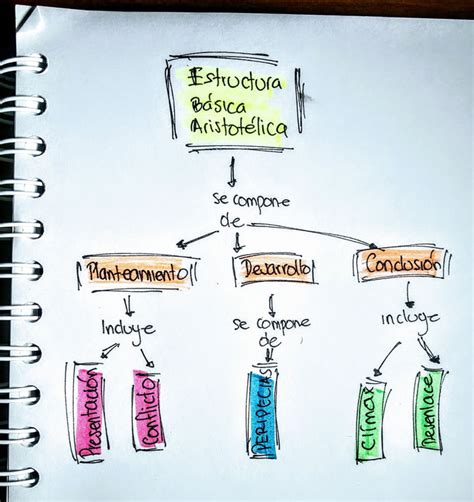 Estructura
Básica
Aristotélica
se compone
de
Planteamiento
Desarrollo
Conclusión
Incluye
se compone
de
incluye
Presentación
Conflicto
PERIPECIAS
Clímax
Desenlace